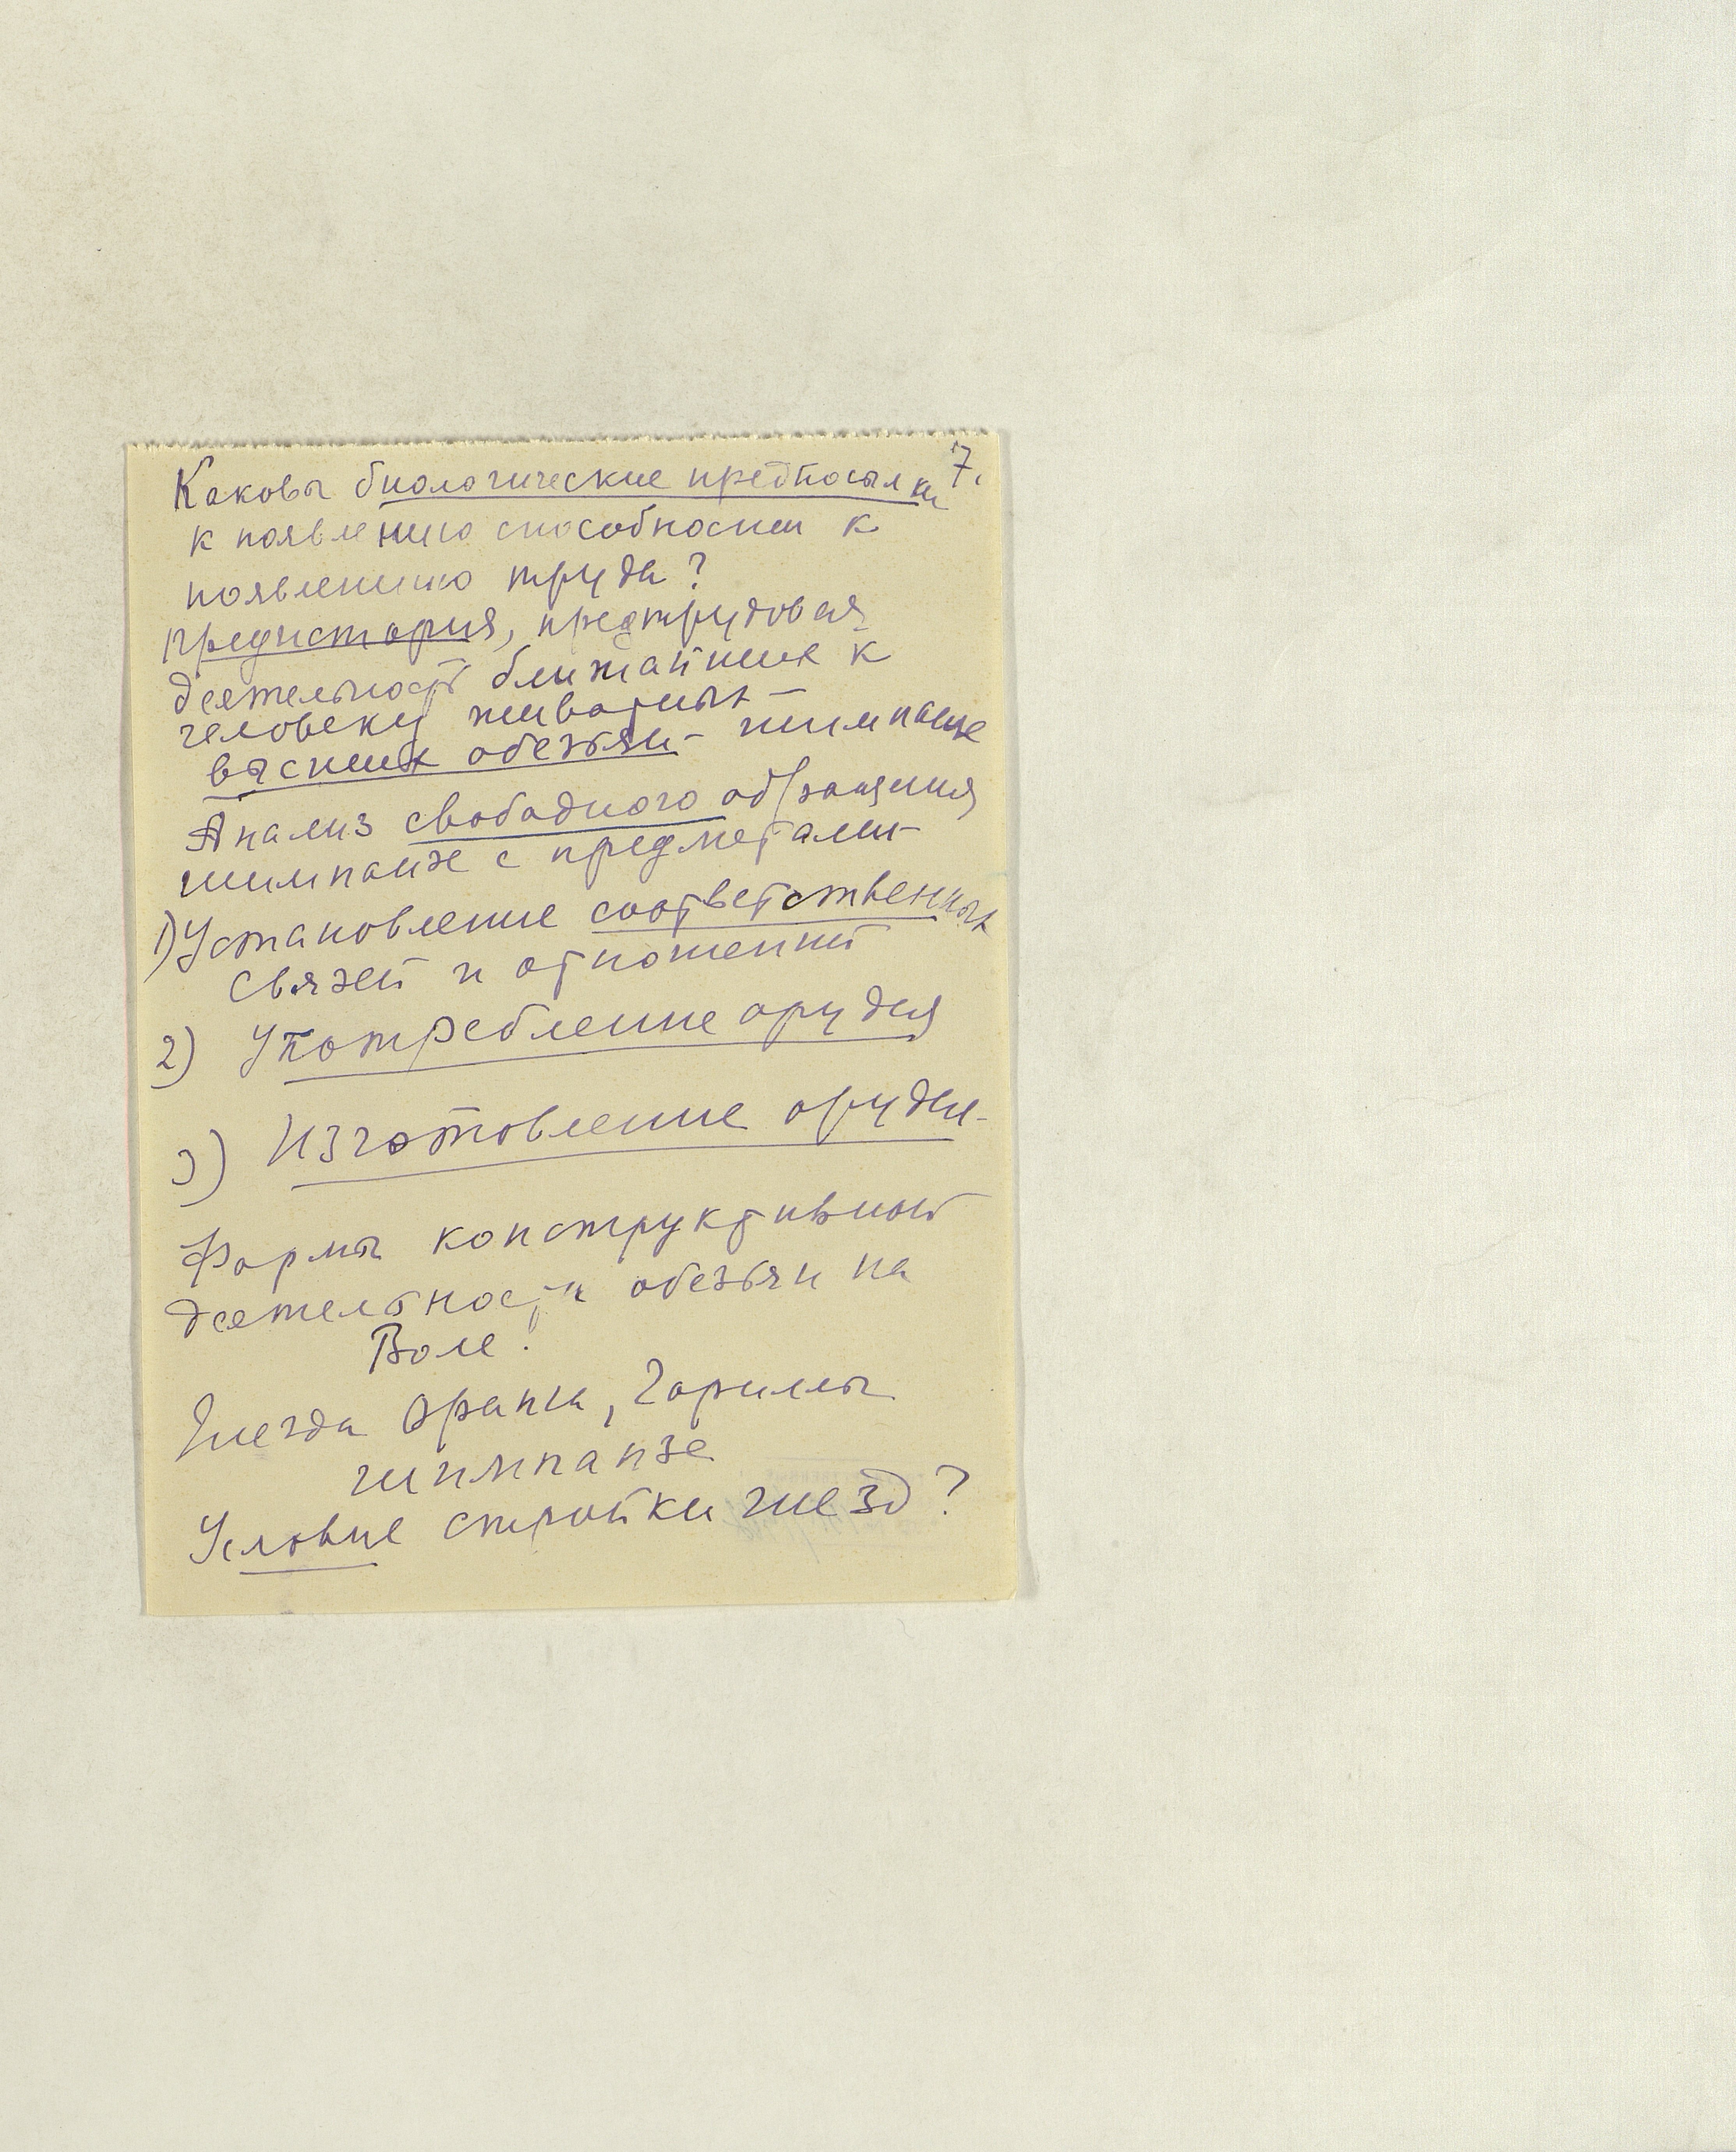 7.
Каковы биологические предпосылки
к появлению способности к
появлению труда?
Предистория, предтрудовая
деятельность ближайших к
человеку животных –
высших обезьян – шимпанзе
Анализ свободного обращения
шимпанзе с предметами –
1) Установление соответственных
связей и отношений
2) Употребление орудия
3) Изготовление орудия –
Формы конструктивной
деятельности обезьян на
Воле.
Гнезда Оранга, Гориллы
шимпанзе
Условие стройки гнезд?